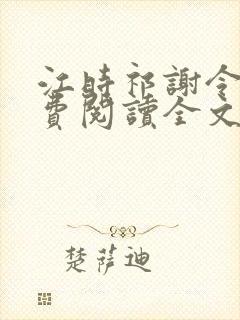 江時祁謝令
費閱讀全文
楚薩迪